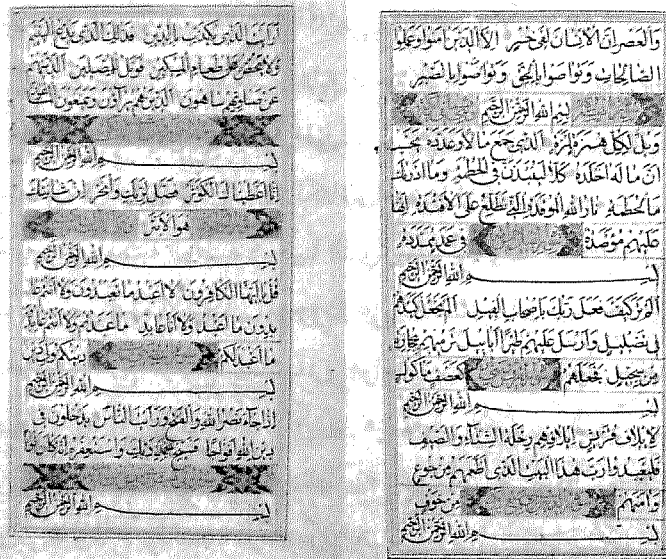 والعصر ان الانسان لفى خسر الا الذين امنوا وعملوا
الصالحات وتواصوا بالحق وتواصوا بالصبر
بسم الله الرحمن الرحيم
ويل لكل همزة لمزة الذى جمع مالا وعدده يحسب
ان ماله اخلده كلا لينبذن فى الحطمة وما ادريك
ما الحطمة نار الله الموقدة التى تطلع على الافئدة انها
عليهم موصدة فى عمد ممددة
بسم الله الرحمن الرحيم
الم تر كيف فعل ربك باصحاب الفيل الم يجعل كيدهم
فى تضليل وارسل عليهم طيرا ابابيل ترميهم بحجارة
من سجيل فجعلهم كعصف ماكول
بسم الله الرحمن الرحيم
لايلاف قريش ايلافهم رحلة الشتاء والصيف
فليعبدوا رب هذا البيت الذى اطعمهم من جوع
وامنهم من خوف
بسم الله الرحمن الرحيم
ارايت الذى يكذب بالدين فذلك الذى يدع اليتيم
ولا يحض على طعام المسكين فويل للمصلين الذينهم
عن صلوتهم ساهون الذينهم يراؤن ويمنعون الماعون
بسم الله الرحمن الرحيم
انا اعطيناك الكوثر فصل لربك وانحر ان شانئك
هو الابتر
بسم الله الرحمن الرحيم
قل يا ايها الكافرون لا اعبد ما تعبدون ولا انتم عا
بدون ما اعبد ولا انا عابد ما عبدتم ولا انتم عابدون
ما اعبد لكم دينكم ولى دين
بسم الله الرحمن الرحيم
اذا جاء نصر الله والفتح ورايت الناس يدخلون فى
دين الله افواجا فسبح بحمد ربك واستغفره انه كان توابا
بسم الله الرحمن الرحيم